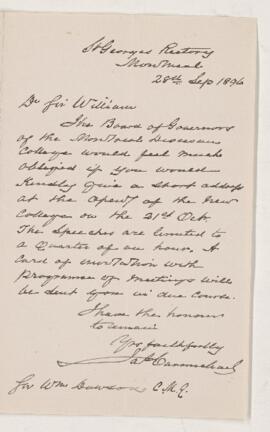 St Georges Rectory
Montreal
28th Sep 1896
Dr Sir William
The Board of Governors
of the Montreal Diocesan
College would feel much
obliged if you would
kindly give a short address
at the opening of the new
College on the 21st Oct.
The speeches are limited to
a quarter of an hour. A
card of invitation with
programme of meetings will
be sent you in due course.
I have the honour
to remain
Yrs faithfully
Jas Carmichael
Sir Wm Dawson C.M.G.